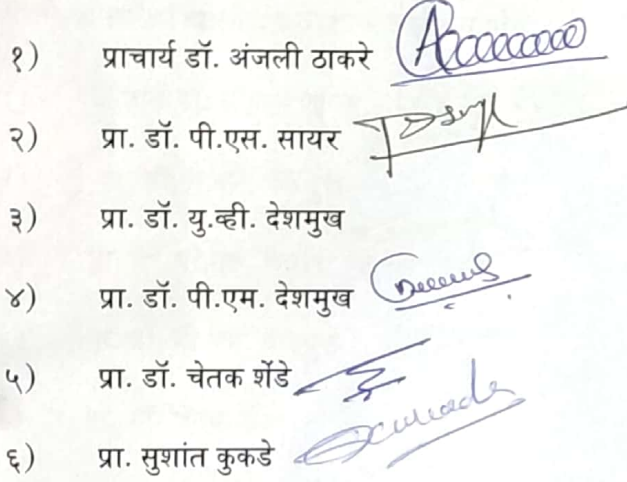 १) प्राचार्य डॉ. अंजली ठाकरे
२) प्रा. डॉ. पी.एस. सायर
३) प्रा. डॉ. यु.व्ही. देशमुख
४) प्रा. डॉ. पी.एम. देशमुख
५) प्रा. डॉ. चेतक शेंडे
६) प्रा. सुशांत कुकडे